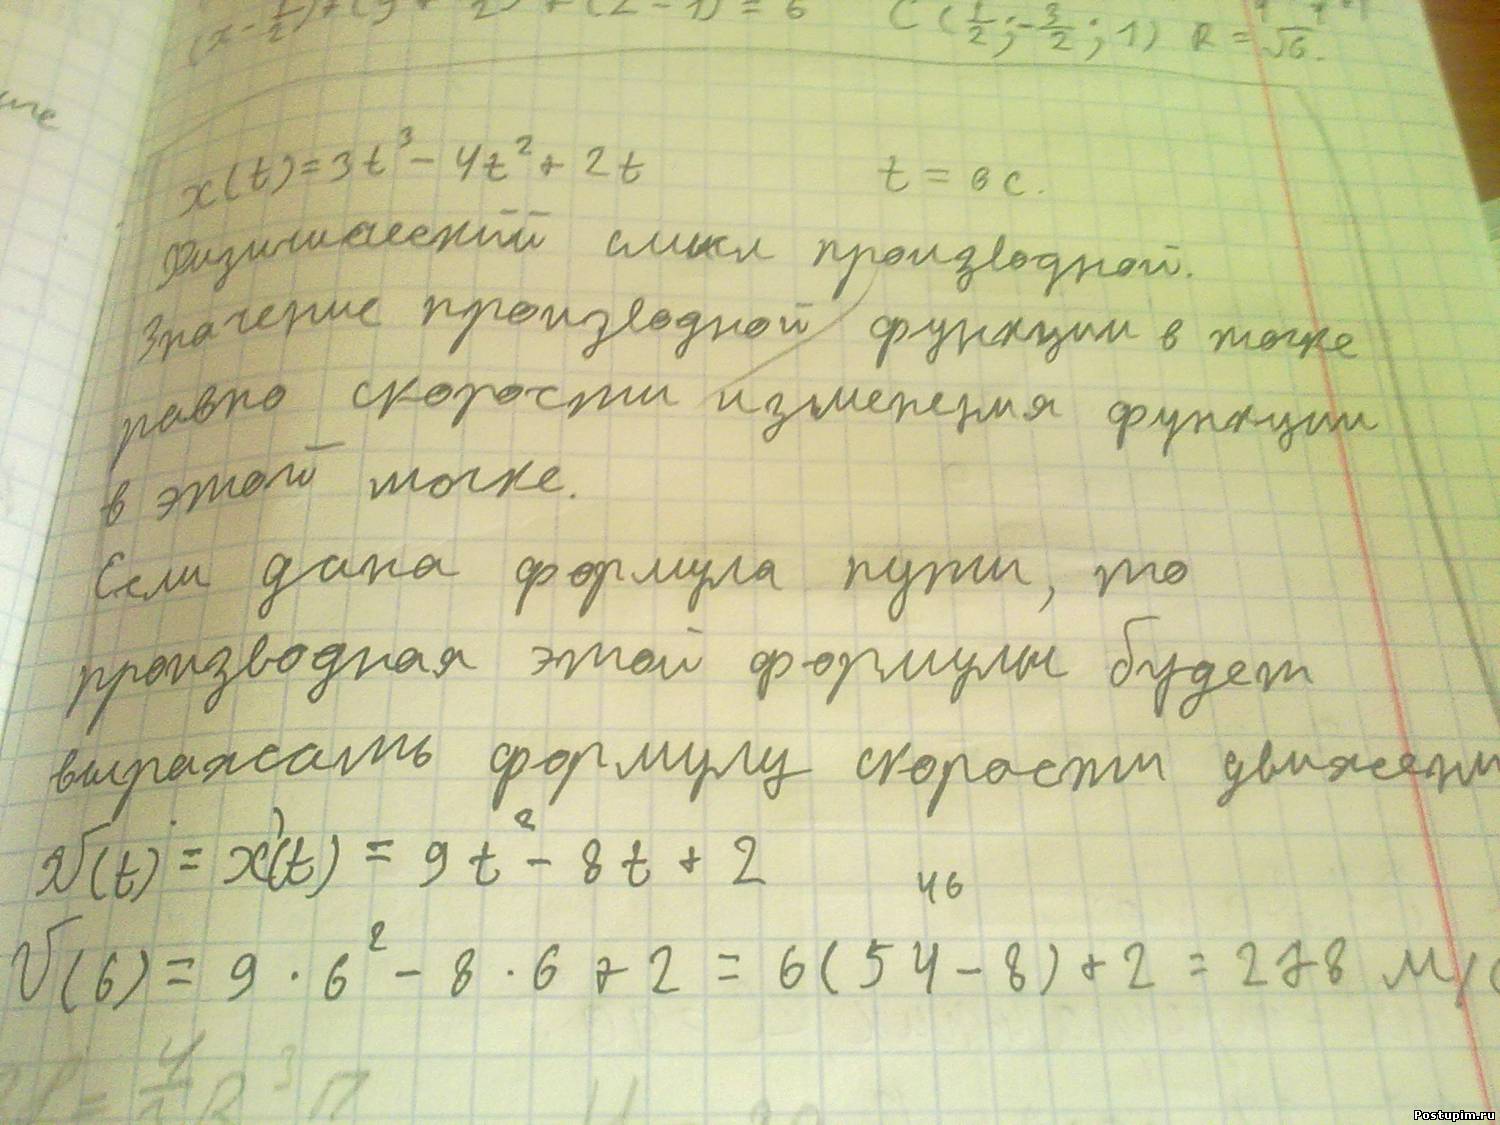 (x - 1/2) + (y + 2) + (z - 1) = 6 C (1/2; -3/2; 1) R = √6.
x(t) = 3t³ - 4t² + 2t t = 6 с.
Физический смысл производной.
Значение производной функции в точке
равно скорости изменения функции
в этой точке.
Если дана формула пути, то
производная этой формулы будет
выражать формулу скорости движени
v(t) = x'(t) = 9t² - 8t + 2
46
v(6) = 9 · 6² - 8 · 6 + 2 = 6(54 - 8) + 2 = 278 м/с
Postupim.ru